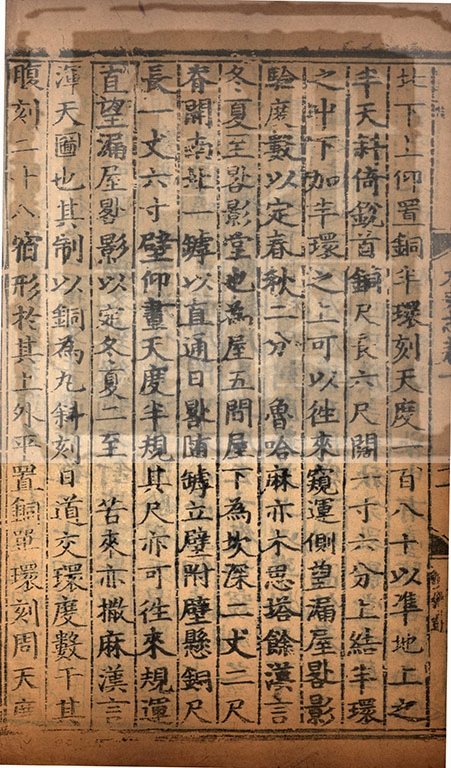 北下上仰置銅半環刻天度一百八十以準地上之
半天斜倚銳首銅尺長六尺闊一寸六分上結半環
之中下加半環之上可以徃來窺運側望漏屋晷影
驗度數以定春秋二分　魯哈麻亦木思塔餘漢言
冬夏至晷影堂也為屋五間屋下為坎深二丈二尺
脊開南北一罅以直通日晷随罅立壁附壁懸銅尺
長一丈六寸壁仰畫天度半規其尺亦可徃來規運
直望漏屋晷影以定冬夏二至　苦來亦撒麻漢言
渾天圖也其制以銅為丸斜刻日道交環度數于其
腹刻二十八宿形於其上外平置銅單環刻周天度